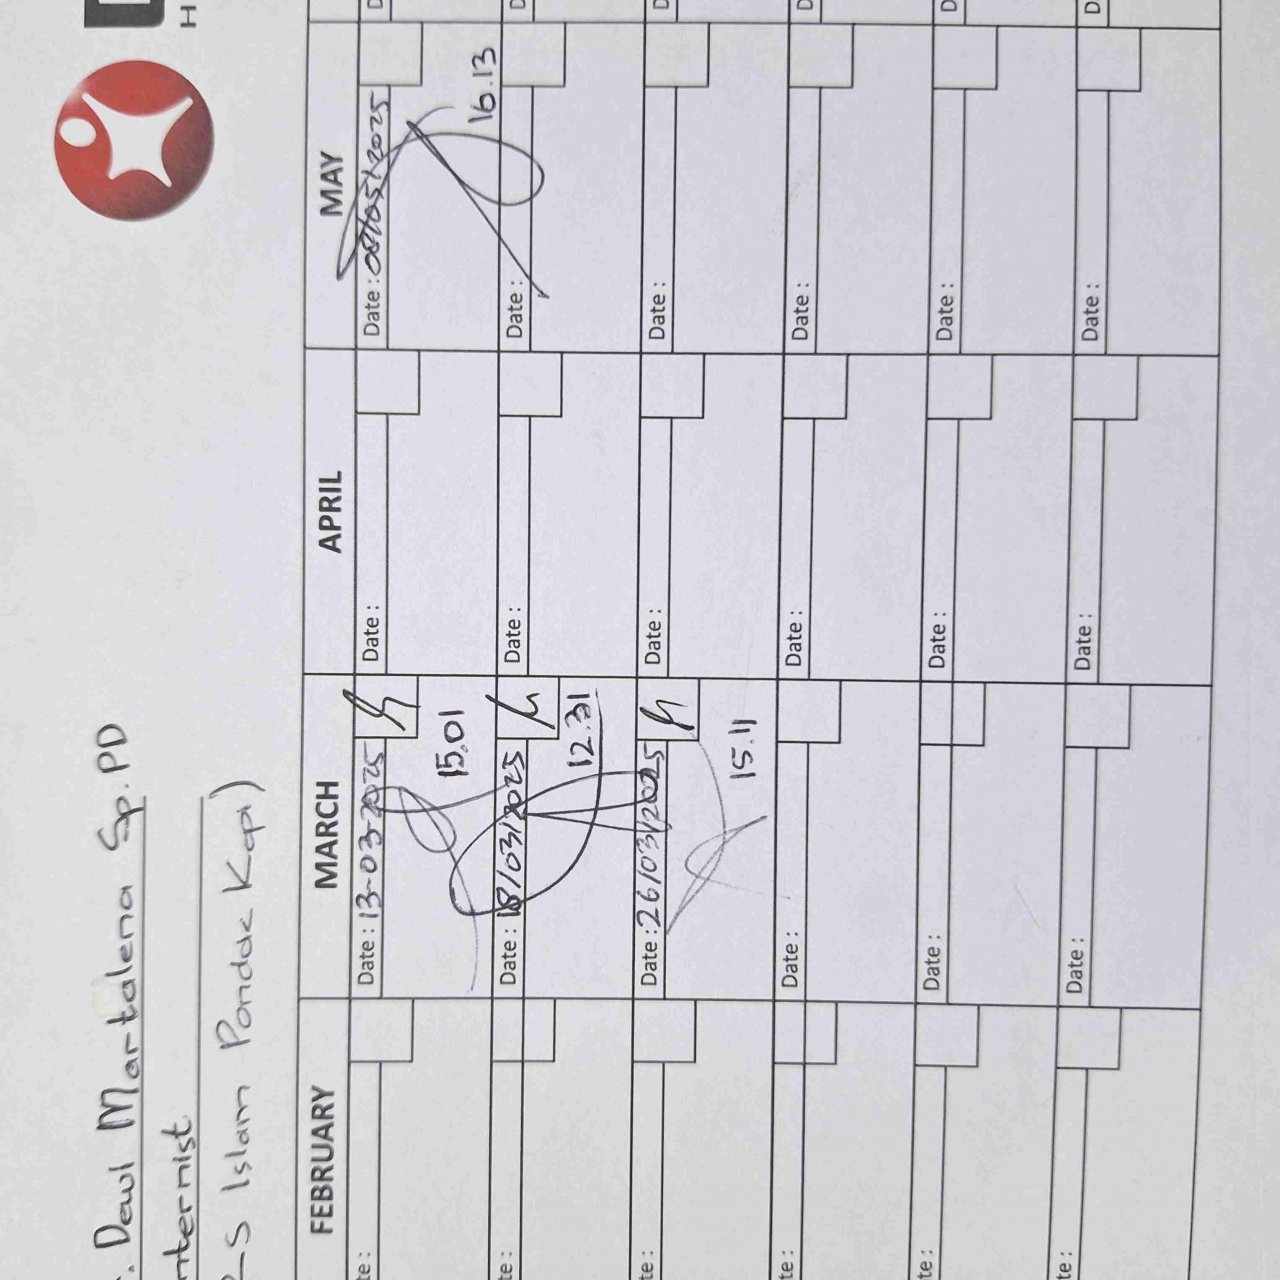 . Dewi Martalena Sp.PD
nternist
S Islam Pondok Kopi)
H
FEBRUARY MARCH APRIL MAY
te: Date: 13-03-2025 Date: Date: 08/05/2025 D
15.01 16.13
te: Date: 18/03/2025 Date: Date: D
12.31
te: Date: 26/03/2025 Date: Date: D
15.11
te: Date: Date: Date: D
te: Date: Date: Date: D
te: Date: Date: Date: D